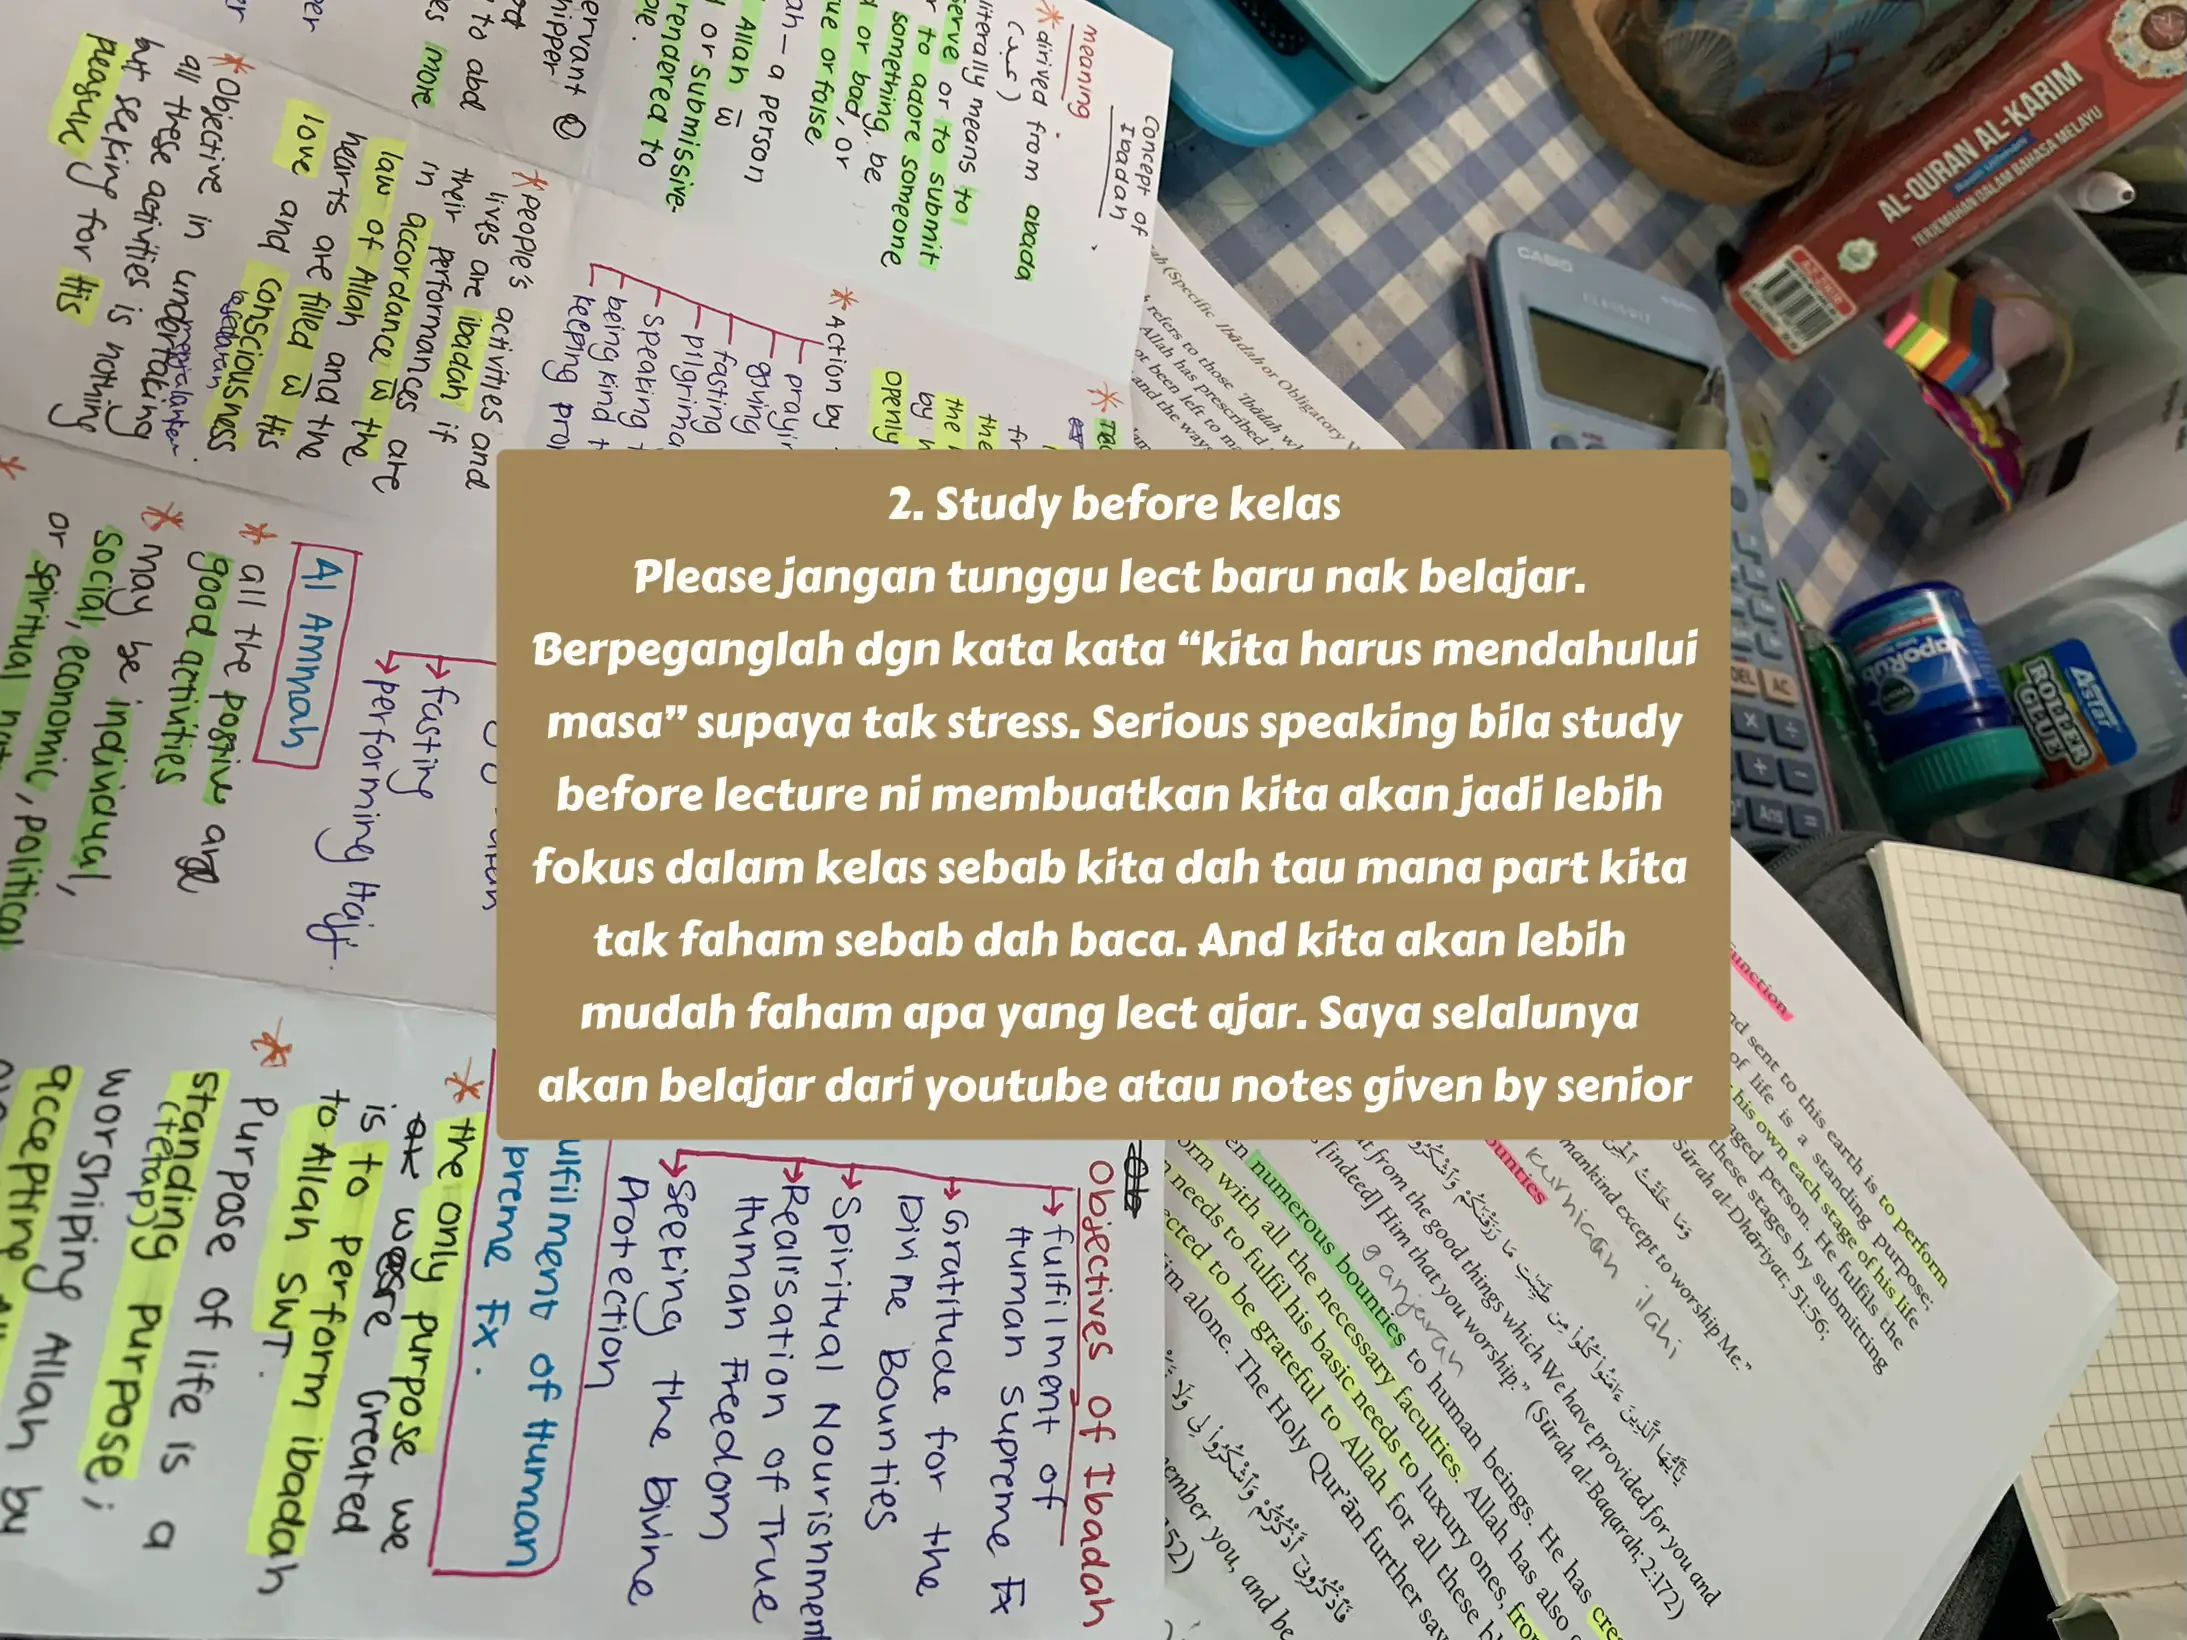 2. Study before kelas
Please jangan tunggu lect baru nak belajar.
Berpeganglah dgn kata kata “kita harus mendahului
masa” supaya tak stress. Serious speaking bila study
before lecture ni membuatkan kita akan jadi lebih
fokus dalam kelas sebab kita dah tau mana part kita
tak faham sebab dah baca. And kita akan lebih
mudah faham apa yang lect ajar. Saya selalunya
akan belajar dari youtube atau notes given by senior
concept of
Ibadah
meaning
* dirived from abada
(عبد)
literally means to
serve or to submit
or to adore someone
something, be
or bad, or
ue or false
ah - a person
Allah w̄
or submissive-
rendered to
ple.
ervant @
hipper
to abd
es more
* Action by
fasting
being kind t
* people's activities and
lives are ibadah if
their performances are
in accordance w̄ the
law of Allah and the
hearts are filled w̄ His
love and consciousness
kesedaran
* Objective in undertaking
all these activities is nothing
but seeking for His
peasure
openly
Al Ammah
* all the postive and
good activities
* may be individual,
social, economic, political
or spiritual
fasting
performing Hajj.
Objectives of Ibadah
fulfilment of
Human Supreme Fx
Gratitude for the
Divine Bounties
Spiritual Nourishment
Realisation of True
Human Freedom
Seeking the Divine
Protection
ulfilment of Human
preme Fx.
* the only purpose we
were created
is to perform ibadah
to Allah SWT.
* Purpose of life is a
standing purpose;
(tetap)
worshiping Allah by
accepting
ah (Specific Ibādah or Obligatory
refers to those 'Ibādah wh
Allah has prescribed
or been left to ma
and the ways
AL-QURAN AL-KARIM
TERJEMAHAN DALAM BAHASA MELAYU
CASIO
DEL AC
× ÷
+ −
Ans =
VapoRub
Astar
ROLLER
GLUE
unction
nd sent to this earth is to perform
of life is a standing purpose;
his own each stage of his life
aged person. He fulfils the
these stages by submitting
Sūrah al-Dhāriyat; 51:56;
وَمَا خَلَقْتُ ٱلْجِنَّ
mankind except to worship Me.”
kurniaan ilahi
ounties
ganjaran
يَٰٓأَيُّهَا ٱلَّذِينَ ءَامَنُوا۟ كُلُوا۟ مِن طَيِّبَٰتِ مَا رَزَقْنَٰكُمْ وَٱشْكُرُوا۟
at from the good things which We have provided for you and
[indeed] Him that you worship.” (Sūrah al-Baqarah; 2:172)
en numerous bounties to human beings. He has cre
orm with all the necessary faculties. Allah has also
needs to fulfil his basic needs to luxury ones, fro
ected to be grateful to Allah for all these b
im alone. The Holy Qur’ān further say
فَٱذْكُرُونِىٓ أَذْكُرْكُمْ وَٱشْكُرُوا۟ لِى وَلَا
ember you, and be
152)